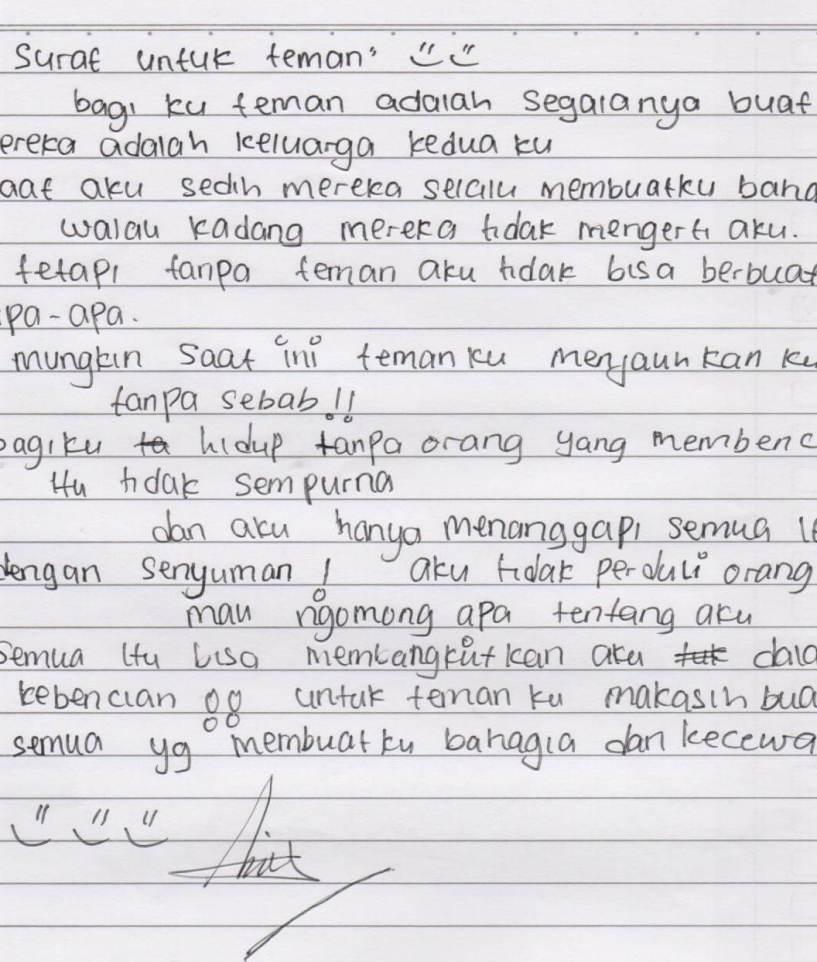 Surat untuk teman"
bagi ku teman adalah segalanya buat
ereka adalah keluarga kedua ku
aat aku sedih mereka selalu membuatku baha
walau kadang mereka tidak mengerti aku.
tetapi tanpa teman aku tidak bisa berbuat
pa-apa.
mungkin saat ini teman ku menjauh kan ku
tanpa sebab!!
bagiku ta hidup tanpa orang yang membenc
itu tidak sempurna
dan aku hanya menanggapi semua it
dengan senyuman! aku tidak perduli orang
mau ngomong apa tentang aku
semua itu bisa membangkitkan aku tuk dala
kebencian !! untuk teman ku makasih bua
semua yg membuat ku bahagia dan kecewa